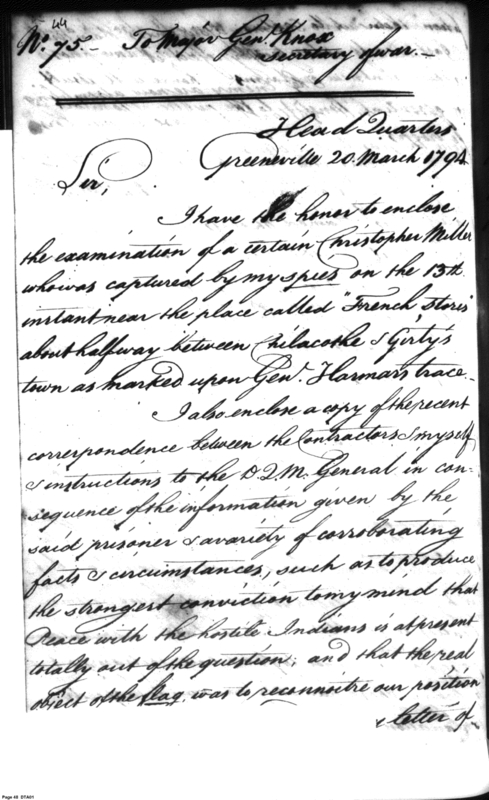 44
No. 75 - To Major Genl. Knox
Secretary of war. -
Head Quarters
Greeneville 20. March 1794
Sir,
I have the honor to enclose
the examination of a certain Christopher Miller
who was captured by my spies on the 13th.
instant near the place called "French Stores"
about halfway between Chilacothe & Girty's
town as marked upon Genl. Harmar's trace -
I also enclose a copy of the recent
correspondence between the Contractors & myself
& instructions to the D.Q.M. General in con-
sequence of the information given by the
said prisoner & a variety of corroborating
facts & circumstances, such as to produce
the strongest conviction to my mind that
Peace with the hostile Indians is at present
totally out of the question; and that the real
object of the flag was to reconnoitre our position
& letter of
Page 48 DTA01